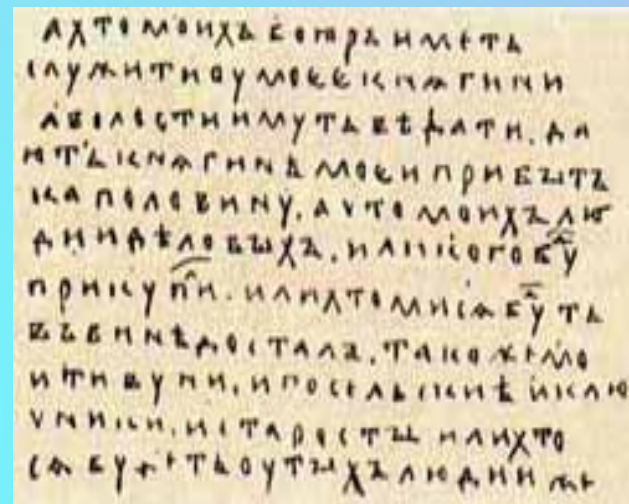 А ХТО МОИХЪ БОꙖРЪ ИМЕТЬ
СЛУЖИТИ ОУ МОЕЕ КНѦГИНИ
А ВОЛОСТИ ИМУТЬ ВѢДАТИ. ДА
ЮТЬ КНѦГИНѢ МОЕИ ПРИБЫТЪ
КА ПОЛОВИНУ. А ЧТО МОИХЪ ЛЮ
ДИИ ДѢЛОВЫХЪ. ИЛИ КОГО БУ
ПРИКУПИ. ИЛИ ХТО МИ СѦ БУ ТЬ
ВЪ ВИНѢ ДОСТАЛЪ. ТАКО ЖЕ МО
И ТИВУНИ. И ПОСЕЛЬСКИѢ И КЛЮ
ЧНИКИ. И СТАРОСТЫ ИЛИ ХТО
СѦ БУДЕТЬ ОУ ТЫХЪ ЛЮДИИ